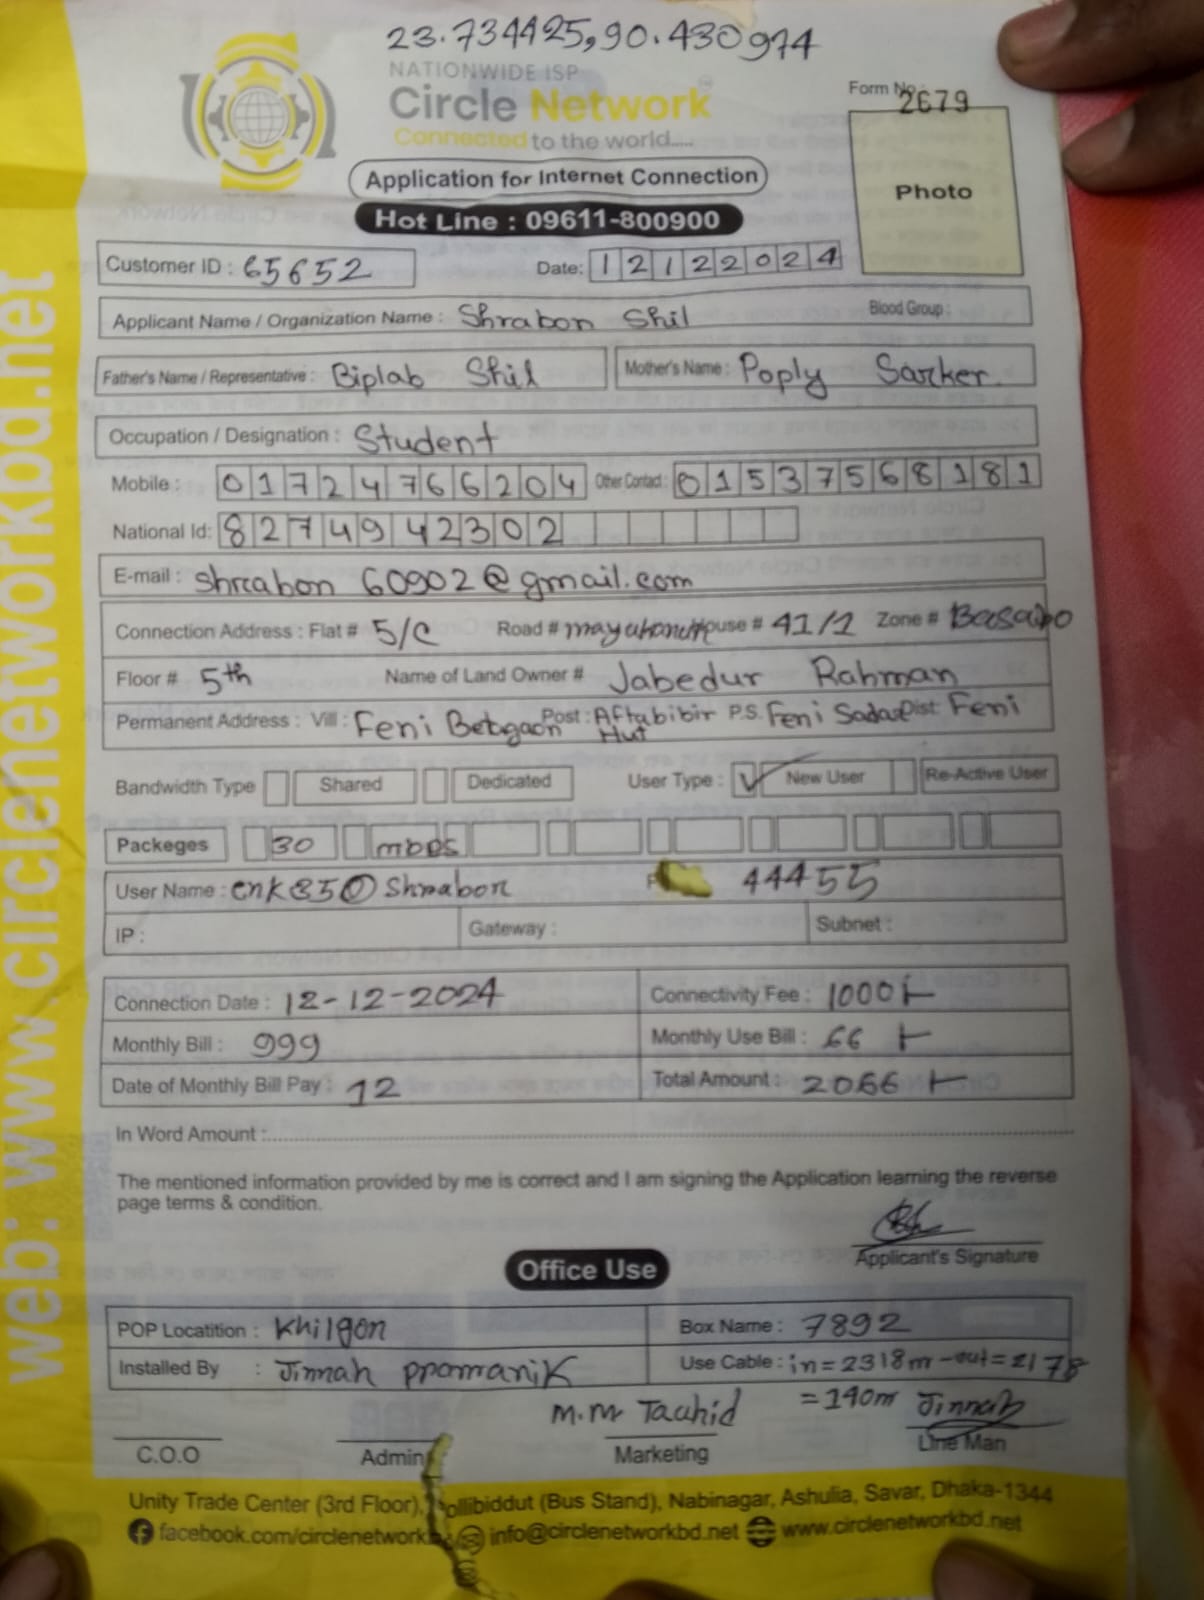 23.734425,90.430974
NATIONWIDE ISP
Circle Network
Connected to the world.....
Form No. 2679
Photo
Application for Internet Connection
Hot Line : 09611-800900
Customer ID : 65652 Date: 12122024
Applicant Name / Organization Name : Shrabon Shil Blood Group :
Father's Name / Representative : Biplab Shil Mother's Name : Poply Sarker
Occupation / Designation : Student
Mobile : 01724766204 Other Contact : 01537568181
National Id: 8274942302
E-mail : shrabon 60902@gmail.com
Connection Address : Flat # 5/C Road # House # 41/1 Zone # Basabo
Floor # 5th Name of Land Owner # Jabedur Rahman
Permanent Address : Vill : Feni Post : Aftabibir Hut P.S. Feni Sadar Dist: Feni
Bandwidth Type Shared Dedicated User Type : ✓ New User Re-Active User
Packeges 30 mbps
User Name : 44455
IP : Gateway : Subnet :
Connection Date : 12-12-2024 Connectivity Fee : 1000
Monthly Bill : 999 Monthly Use Bill : 66
Date of Monthly Bill Pay : 12 Total Amount : 2066
In Word Amount :
The mentioned information provided by me is correct and I am signing the Application learning the reverse
page terms & condition.
Applicant's Signature
Office Use
POP Locatition : Khilgon Box Name : 7892
Installed By : Jinnah ppomanik Use Cable : in=2318m-out=2178
=140m
M.M Tauhid Jinnah
C.O.O Admin Marketing Line Man
Unity Trade Center (3rd Floor), (Bus Stand), Nabinagar, Ashulia, Savar, Dhaka-1344
facebook.com/circlenetwork info@circlenetworkbd.net www.circlenetworkbd.net
web: www.circlenetworkbd.net